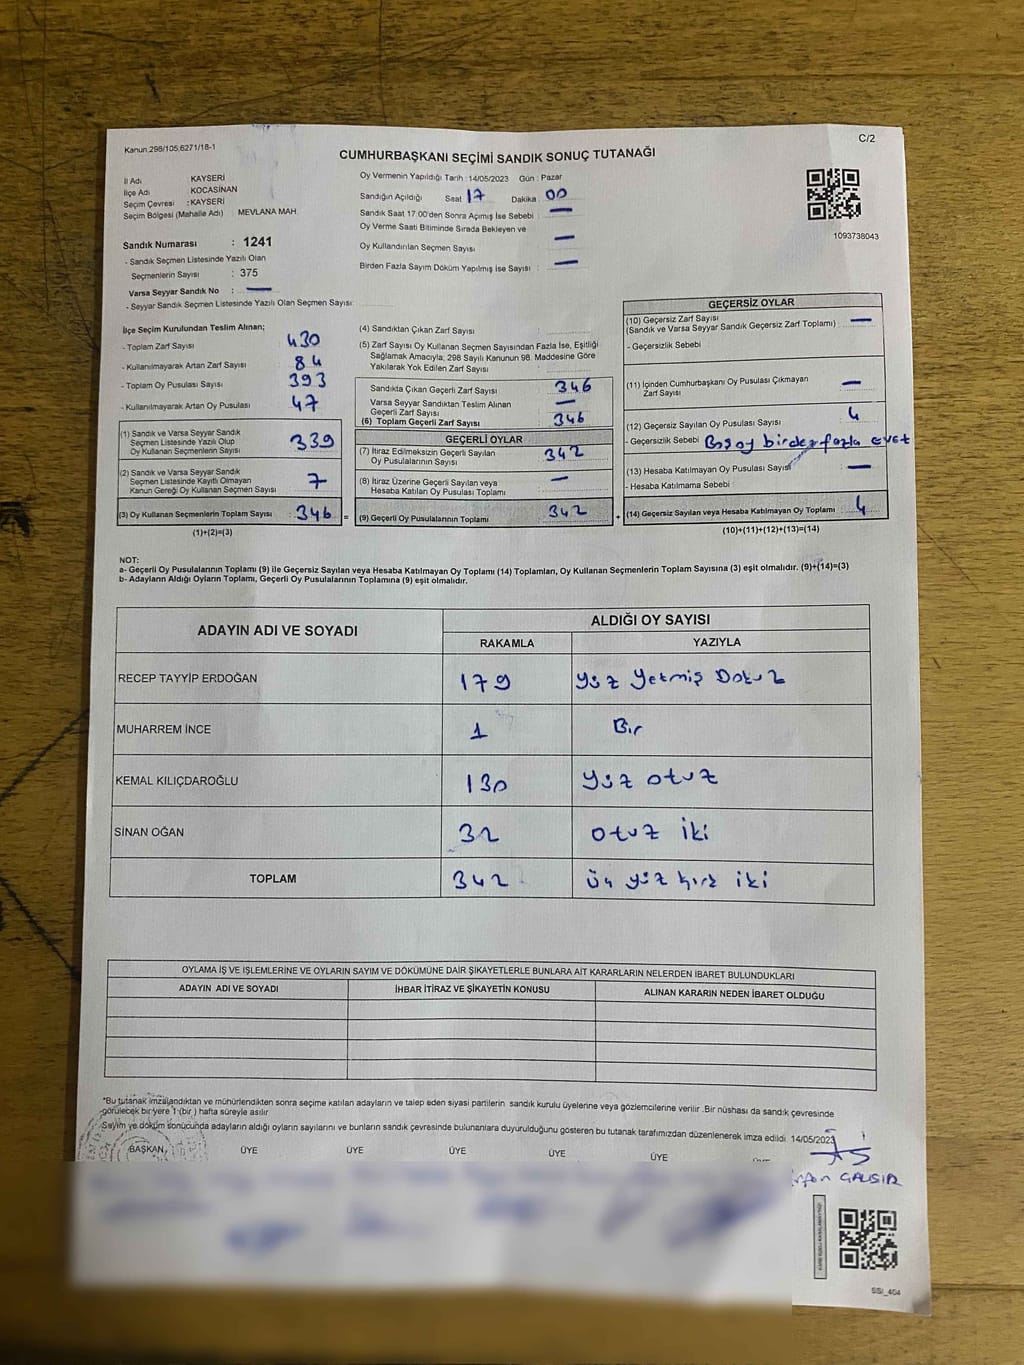 Kanun 298/105;6271/18-1
C/2
CUMHURBAŞKANI SEÇİMİ SANDIK SONUÇ TUTANAĞI
İl Adı : KAYSERİ
İlçe Adı : KOCASİNAN
Seçim Çevresi : KAYSERİ
Seçim Bölgesi (Mahalle Adı) : MEVLANA MAH
Sandık Numarası : 1241
- Sandık Seçmen Listesinde Yazılı Olan
Seçmenlerin Sayısı : 375
Varsa Seyyar Sandık No : —
- Seyyar Sandık Seçmen Listesinde Yazılı Olan Seçmen Sayısı
Oy Vermenin Yapıldığı Tarih : 14/05/2023 Gün : Pazar
Sandığın Açıldığı Saat 17 Dakika 00
Sandık Saat 17:00'den Sonra Açımış İse Sebebi : —
Oy Verme Saati Bitiminde Sırada Bekleyen ve
Oy Kullandırılan Seçmen Sayısı —
Birden Fazla Sayım Döküm Yapılmış İse Sayısı : —
1093738043
İlçe Seçim Kurulundan Teslim Alınan;
- Toplam Zarf Sayısı 430
- Kullanılmayarak Artan Zarf Sayısı 84
- Toplam Oy Pusulası Sayısı 393
- Kullanılmayarak Artan Oy Pusulası 47
(1) Sandık ve Varsa Seyyar Sandık
Seçmen Listesinde Yazılı Olup
Oy Kullanan Seçmenlerin Sayısı 339
(2) Sandık ve Varsa Seyyar Sandık
Seçmen Listesinde Kayıtlı Olmayan
Kanun Gereği Oy Kullanan Seçmen Sayısı 7
(3) Oy Kullanan Seçmenlerin Toplam Sayısı : 346 =
(1)+(2)=(3)
(4) Sandıktan Çıkan Zarf Sayısı :
(5) Zarf Sayısı Oy Kullanan Seçmen Sayısından Fazla İse, Eşitliği
Sağlamak Amacıyla; 298 Sayılı Kanunun 98. Maddesine Göre
Yakılarak Yok Edilen Zarf Sayısı :
Sandıkta Çıkan Geçerli Zarf Sayısı 346
Varsa Seyyar Sandıktan Teslim Alınan
Geçerli Zarf Sayısı —
(6) Toplam Geçerli Zarf Sayısı 346
GEÇERLİ OYLAR
(7) İtiraz Edilmeksizin Geçerli Sayılan
Oy Pusulalarının Sayısı 342
(8) İtiraz Üzerine Geçerli Sayılan veya
Hesaba Katılan Oy Pusulası Toplamı —
(9) Geçerli Oy Pusulalarının Toplamı 342 +
GEÇERSİZ OYLAR
(10) Geçersiz Zarf Sayısı
(Sandık ve Varsa Seyyar Sandık Geçersiz Zarf Toplamı) —
- Geçersizlik Sebebi
(11) İçinden Cumhurbaşkanı Oy Pusulası Çıkmayan
Zarf Sayısı —
(12) Geçersiz Sayılan Oy Pusulası Sayısı 4
- Geçersizlik Sebebi Boş oy birden fazla evet
(13) Hesaba Katılmayan Oy Pusulası Sayısı —
- Hesaba Katılmama Sebebi
(14) Geçersiz Sayılan veya Hesaba Katılmayan Oy Toplamı 4
(10)+(11)+(12)+(13)=(14)
NOT:
a- Geçerli Oy Pusulalarının Toplamı (9) ile Geçersiz Sayılan veya Hesaba Katılmayan Oy Toplamı (14) Toplamları, Oy Kullanan Seçmenlerin Toplam Sayısına (3) eşit olmalıdır. (9)+(14)=(3)
b- Adayların Aldığı Oyların Toplamı, Geçerli Oy Pusulalarının Toplamına (9) eşit olmalıdır.
ADAYIN ADI VE SOYADI
ALDIĞI OY SAYISI
RAKAMLA YAZIYLA
RECEP TAYYİP ERDOĞAN 179 Yüz Yetmiş Dokuz
MUHARREM İNCE 1 Bir
KEMAL KILIÇDAROĞLU 130 Yüz otuz
SİNAN OĞAN 32 otuz iki
TOPLAM 342 üç yüz kırk iki
OYLAMA İŞ VE İŞLEMLERİNE VE OYLARIN SAYIM VE DÖKÜMÜNE DAİR ŞİKAYETLERLE BUNLARA AİT KARARLARIN NELERDEN İBARET BULUNDUKLARI
ADAYIN ADI VE SOYADI İHBAR İTİRAZ VE ŞİKAYETİN KONUSU ALINAN KARARIN NEDEN İBARET OLDUĞU
*Bu tutanak imzalandıktan ve mühürlendikten sonra seçime katılan adayların ve talep eden siyasi partilerin sandık kurulu üyelerine veya gözlemcilerine verilir .Bir nüshası da sandık çevresinde
görülecek bir yere 1 (bir ) hafta süreyle asılır
Sayım ve döküm sonucunda adayların aldığı oyların sayılarını ve bunların sandık çevresinde bulunanlara duyurulduğunu gösteren bu tutanak tarafımızdan düzenlenerek imza edildi. 14/05/2023
BAŞKAN ÜYE ÜYE ÜYE ÜYE ÜYE
SSİ_404